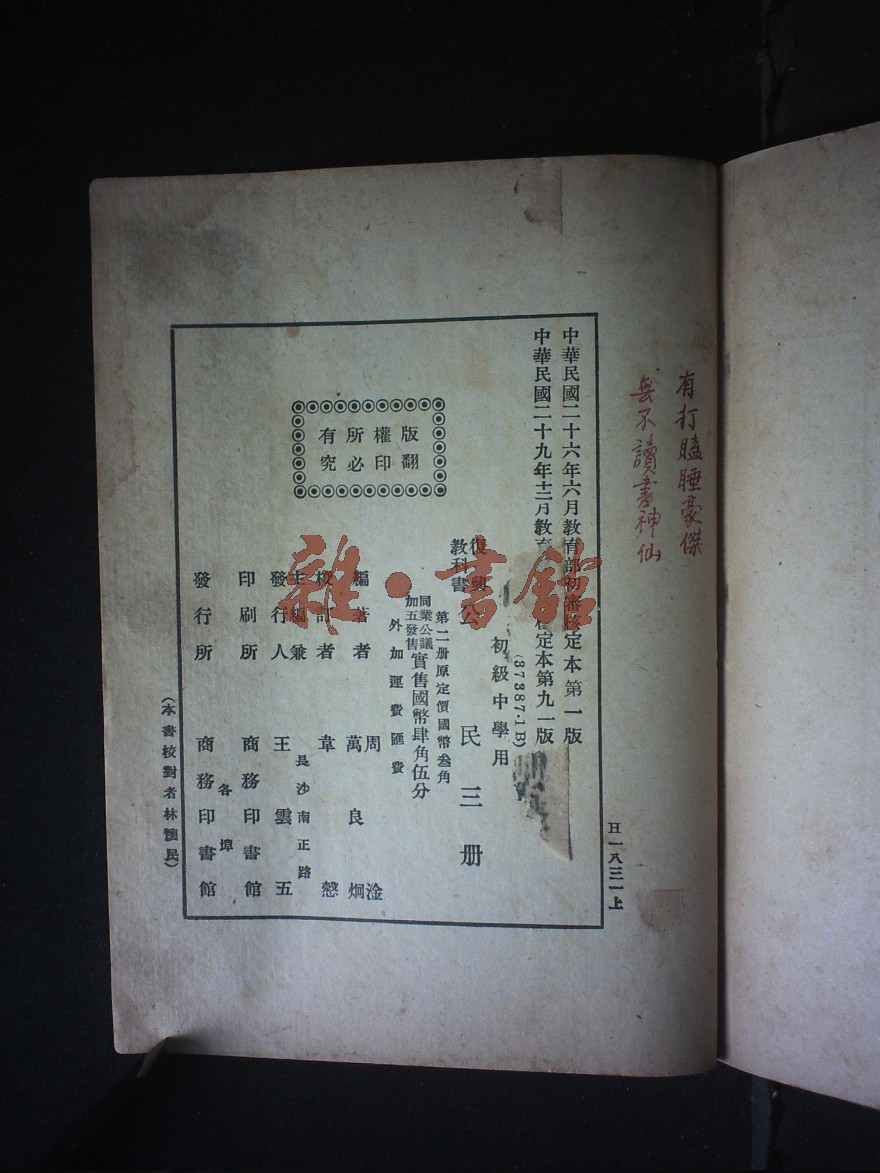 有打瞌睡豪傑
無不讀書神仙
H一八三一上
中華民國二十六年六月教育部初審核定本第一版
中華民國二十九年十二月教育 定本第九一版
(37387·1B)
初級中學用
復興教科書 公民三册
第二册原定價國幣叁角
同業公議加五發售實售國幣肆角伍分
外加運費匯費
版權所有
翻印必究
編著者 周淦 萬良炯
校訂者 韋慤
主編兼發行人 王雲五
長沙南正路
印刷所 商務印書館
各埠
發行所 商務印書館
(本書校對者林懷民)
雜·書館